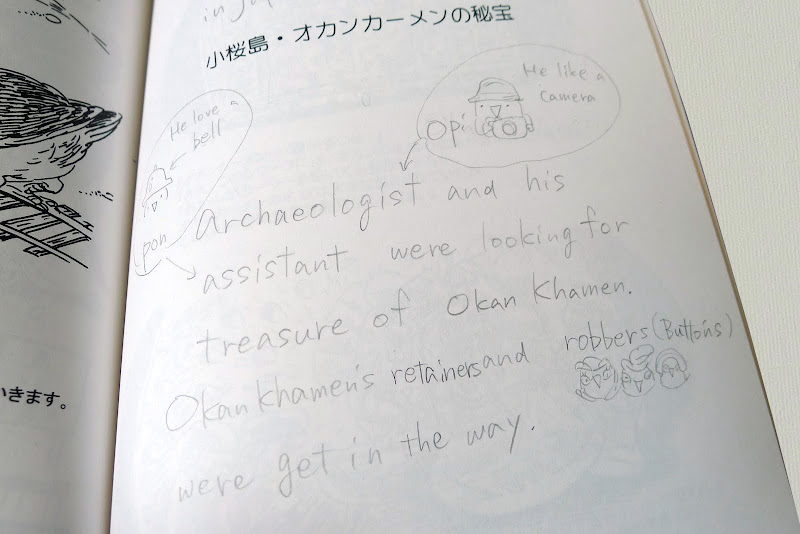 小桜島・オカンカーメンの秘宝
He love a
bell
pon
Opi
He like a
camera
archaeologist and his
assistant were looking for
treasure of Okan Khamen.
Okan khamen's retainers and robbers (Buttons)
were get in the way.
いきます。